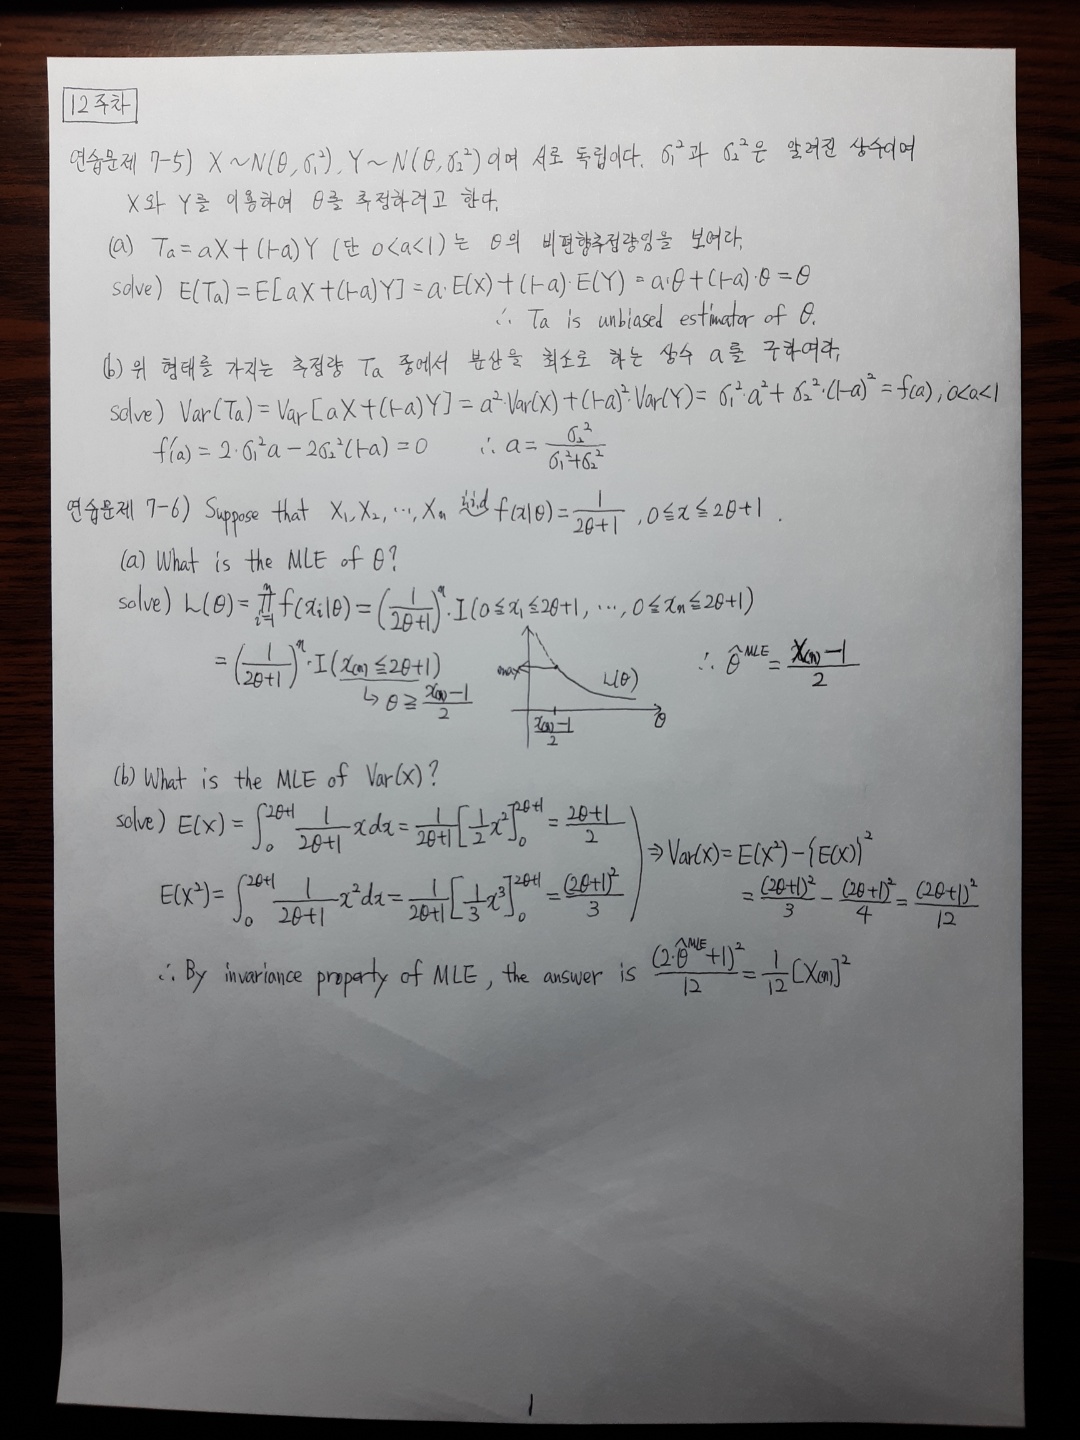 12주차
연습문제 7-5) X ~ N(θ, σ₁²), Y ~ N(θ, σ₂²)이며 서로 독립이다. σ₁²과 σ₂²은 알려진 상수이며
X와 Y를 이용하여 θ를 추정하려고 한다.
(a) Ta = aX + (1-a)Y (단 0<a<1)는 θ의 비편향추정량임을 보여라.
solve) E(Ta) = E[aX + (1-a)Y] = a·E(X) + (1-a)·E(Y) = a·θ + (1-a)·θ = θ
∴ Ta is unbiased estimator of θ.
(b) 위 형태를 가지는 추정량 Ta 중에서 분산을 최소로 하는 상수 a를 구하여라.
solve) Var(Ta) = Var[aX + (1-a)Y] = a²·Var(X) + (1-a)²·Var(Y) = σ₁²·a² + σ₂²·(1-a)² = f(a), 0<a<1
f'(a) = 2·σ₁²a - 2σ₂²(1-a) = 0 ∴ a = σ₂²/(σ₁²+σ₂²)
연습문제 7-6) Suppose that X₁, X₂, ⋯, Xn i.i.d f(x|θ) = 1/(2θ+1), 0≦x≦2θ+1.
(a) What is the MLE of θ?
solve) L(θ) = ∏ⁿᵢ₌₁ f(xᵢ|θ) = (1/(2θ+1))ⁿ·I(0≦x₁≦2θ+1, ⋯, 0≦xn≦2θ+1)
= (1/(2θ+1))ⁿ·I(x(n)≦2θ+1) ∴ θ̂^MLE = (X(n)-1)/2
↳ θ ≧ (x(n)-1)/2
max L(θ)
(x(n)-1)/2 θ
(b) What is the MLE of Var(X)?
solve) E(X) = ∫₀^(2θ+1) 1/(2θ+1) x dx = 1/(2θ+1) [1/2 x²]₀^(2θ+1) = (2θ+1)/2
⇒ Var(X) = E(X²) - {E(X)}²
E(X²) = ∫₀^(2θ+1) 1/(2θ+1) x² dx = 1/(2θ+1) [1/3 x³]₀^(2θ+1) = (2θ+1)²/3
= (2θ+1)²/3 - (2θ+1)²/4 = (2θ+1)²/12
∴ By invariance property of MLE, the answer is (2·θ̂^MLE+1)²/12 = 1/12 [X(n)]²
1